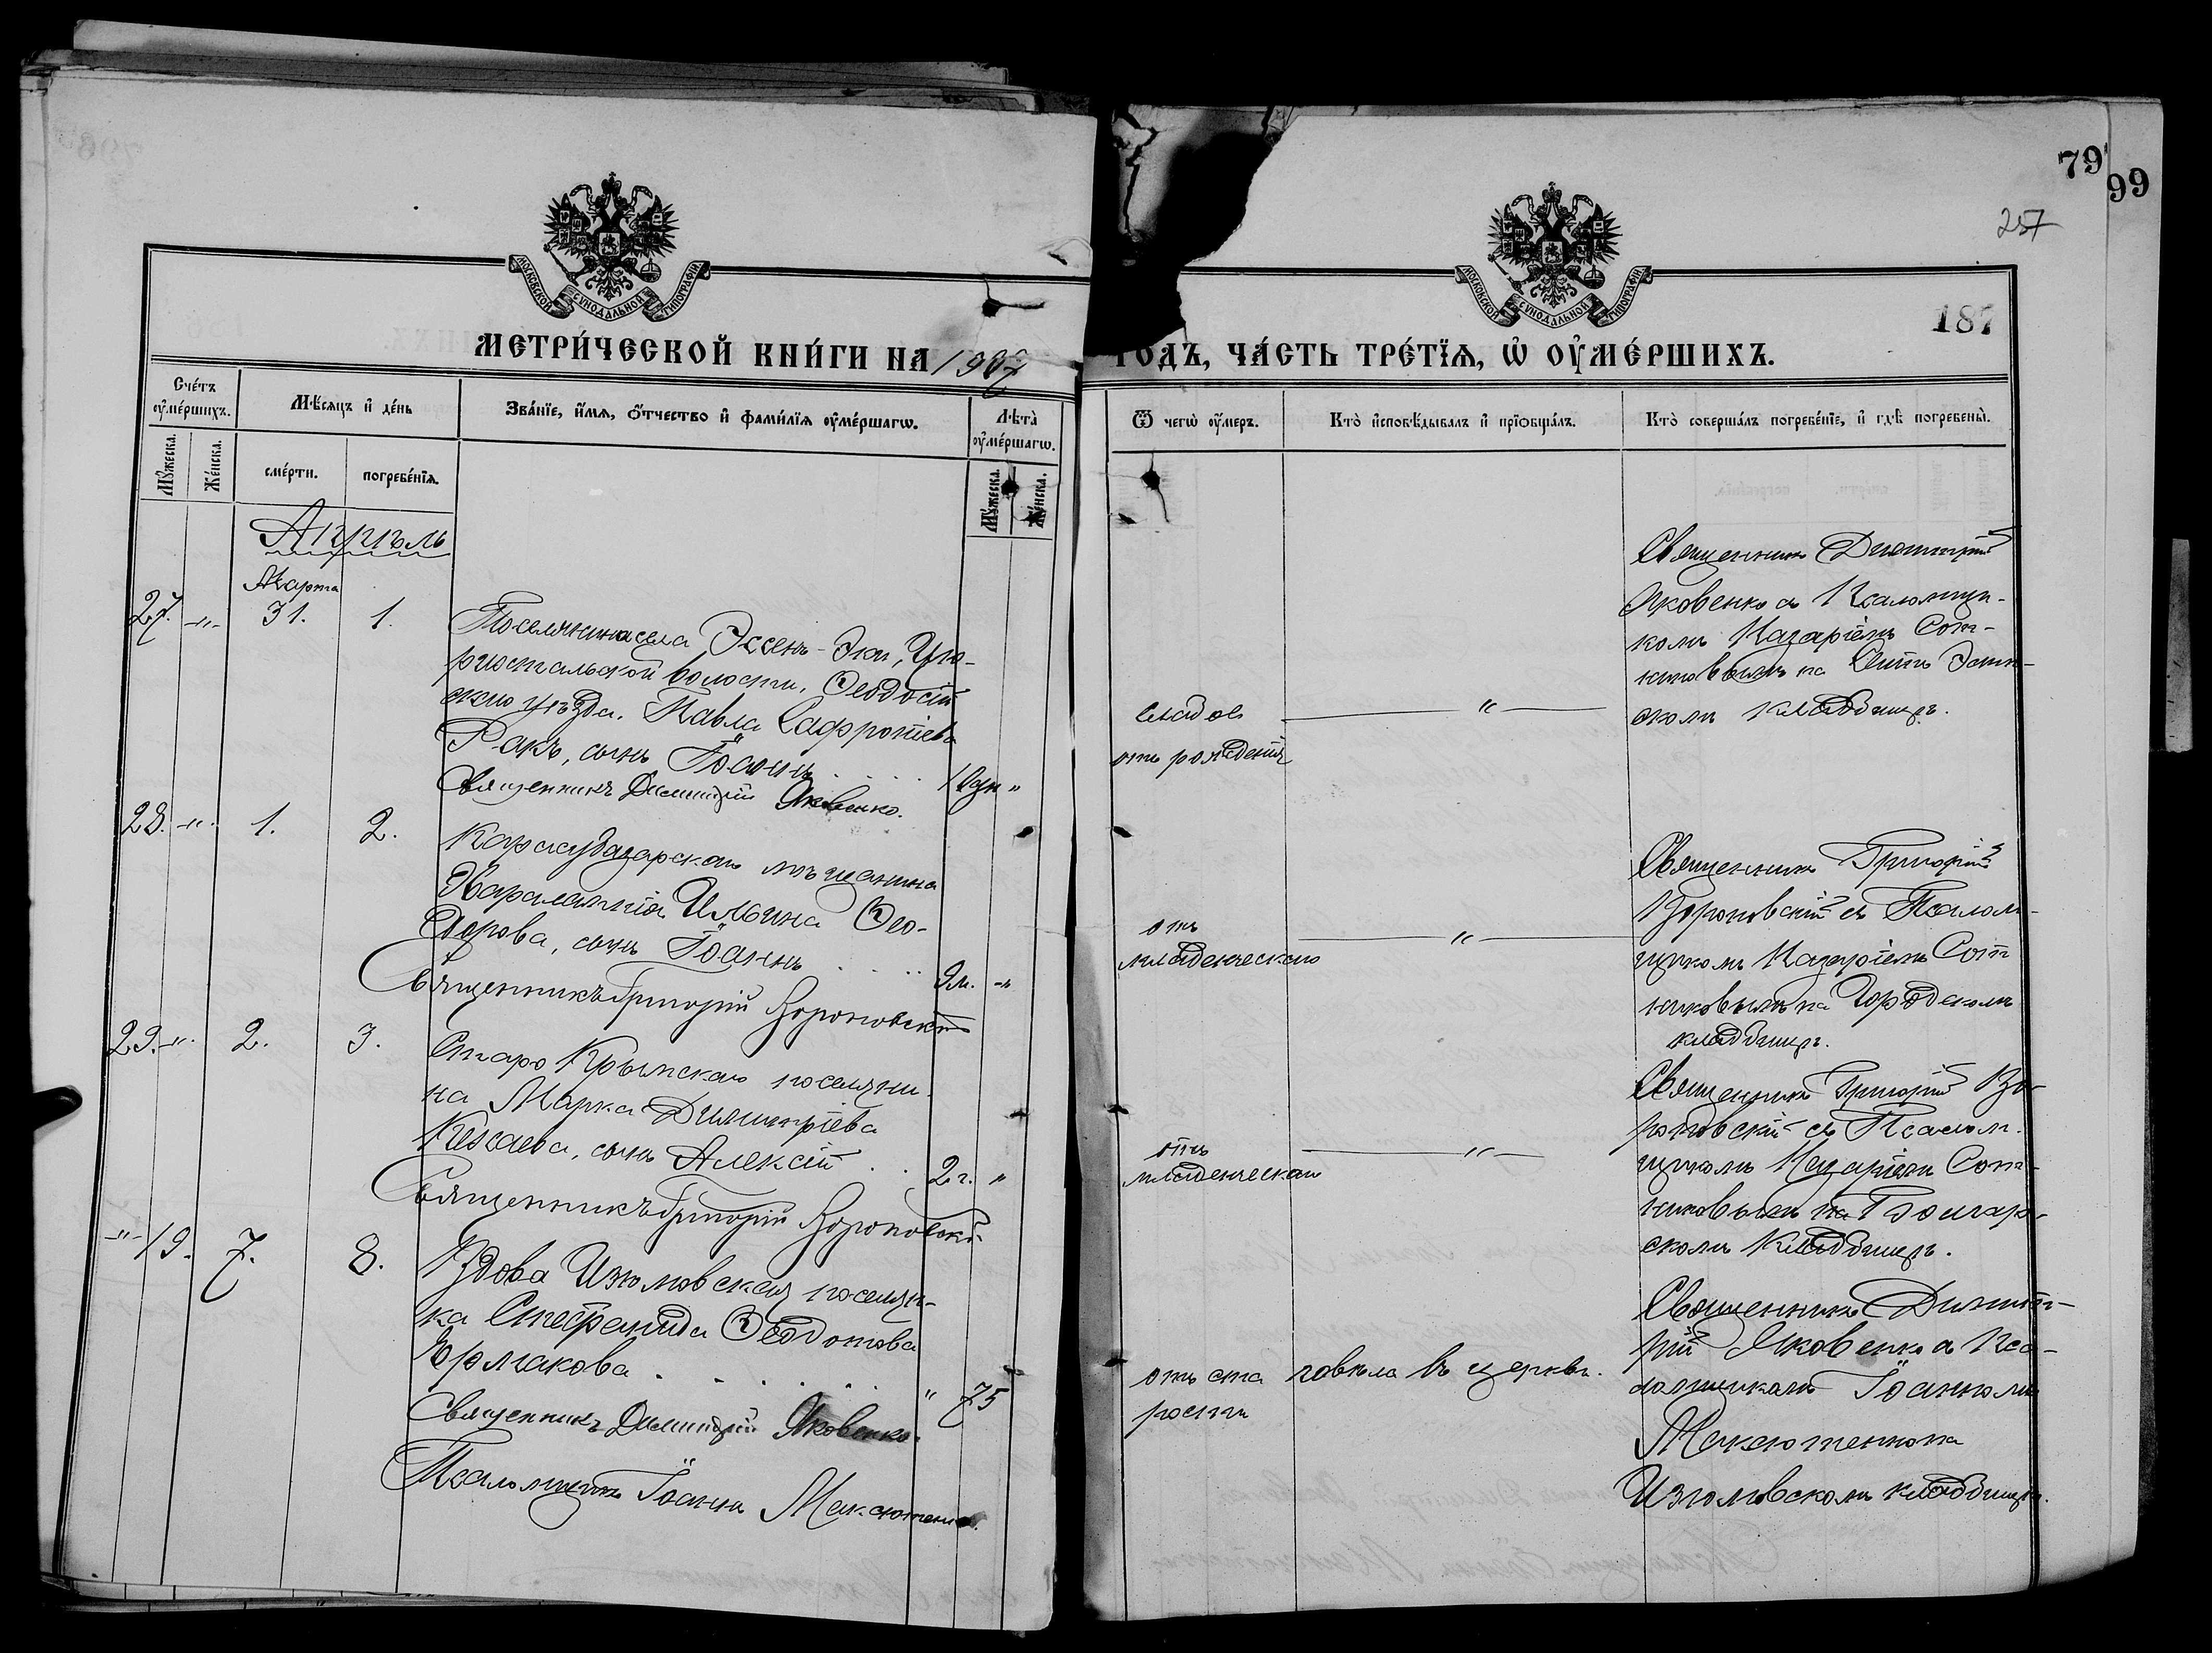 79
99
257
187
МОСКОВСКОЙ СѴНОДАЛЬНОЙ ТИПОГРАФІИ
МОСКОВСКОЙ СѴНОДАЛЬНОЙ ТИПОГРАФІИ
МЕТРИ́ЧЕСКОЙ КНИ́ГИ НА 1907
ГОДЪ, ЧА́СТЬ ТРЕ́ТЇѦ, Ѡ҆ ОУ҆МЕ́РШИХЪ.
Сче́тъ оу҆ме́ршихъ.
Мꙋ́жеска.
Же́нска.
Мѣ́сяцъ и҆ де́нь
сме́рти.
погребе́нїѧ.
Зва́нїе, и҆́мѧ, ѻ҆́тчество и҆ фами́лїѧ оу҆ме́ршагѡ.
Лѣта̀ оу҆ме́ршагѡ.
Мꙋ́жеска.
Же́нска.
Ѿ чегѡ̀ оу҆́меръ.
Кто̀ и҆сповѣ́дывалъ и҆ прїѡбща́лъ.
Кто̀ соверша́лъ погребе́нїе, и҆ гдѣ̀ погребены̀.
Апрѣль
Марта
27. -"- 31. 1.
Поселянина села Эссенъ-Эки, Цю-
рихтальской волости, Ѳеодосій
скаго уѣзда, Павла Сафроніева
Ракъ, сынъ Іоаннъ . . . .
1 "
Священникъ Димитрій Яковенко.
слабость
отъ рожденія
"
Священникъ Димитрій
Яковенко съ Псаломщи-
комъ Назаріемъ Сот-
никовымъ на
скомъ кладбищѣ.
28. -"- 1. 2.
Карасубазарскаго мѣщанина
Харалампія Ильина Ѳео-
дорова, сынъ Іоаннъ . . .
9м. -"
Священникъ Григорій Вороновскій
отъ
младенческаго
"
Священникъ Григорій
Вороновскій съ Псалом-
щикомъ Назаріемъ Сот
никовымъ на Городскомъ
кладбищѣ.
29. -"- 2. 3.
Старо Крымскаго поселяни-
на Марка Димитріева
Кехаева, сынъ Алексій . .
2г. "
Священникъ Григорій Вороновскій
отъ
младенческаго
"
Священникъ Григорій Во-
роновскій съ Псалом-
щикомъ Назаріемъ Сот-
никовымъ на Болгар-
скомъ Кладбищѣ.
-"- 19. 7. 8.
Вдова Изюмовская поселян-
ка Стефанида Ѳеодотова
Ермакова . . . . . .
" 75
Священникъ Димитрій Яковенко.
Псаломщикъ Іоаннъ Максютенко.
отъ ста
рости
говѣла въ церкви.
Священникъ Димит-
рій Яковенко съ Пса-
ломщикомъ Іоанномъ
Максютенко на
Изюмовскомъ кладбищѣ.